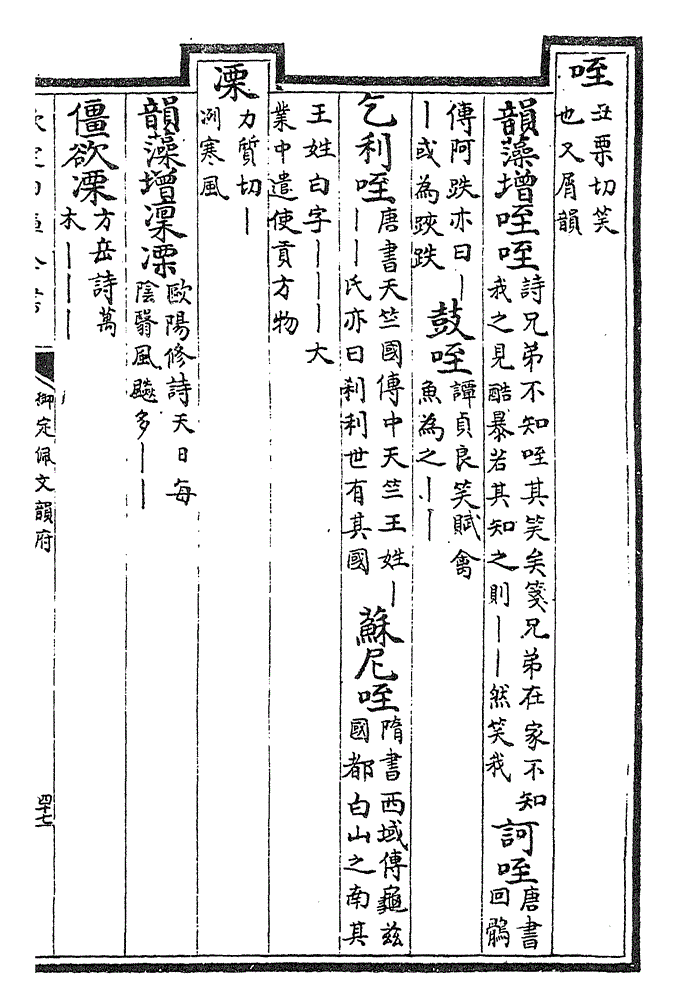 咥
丑栗切笑
也又屑韻
韻藻增咥咥
詩兄弟不知咥其笑矣箋兄弟在家不知
我之見酷暴若其知之則丨丨然笑我
訶咥
唐書
回鶻
傳阿跌亦曰丨
丨或為𨁂跌
鼓咥
譚貞良笑賦禽
魚為之丨丨
乞利咥
唐書天竺國傳中天竺王姓丨
丨丨氏亦曰刹利世有其國
蘇尼咥
隋書西域傳龜茲
國都白山之南其
王姓白字丨丨丨大
業中遣使貢方物
凓
力質切丨
冽寒風
韻藻增凜凓
歐陽修詩天日每
陰翳風飈多丨丨
僵欲凓
方岳詩萬
木丨丨丨
欽定四庫全書
御定佩文韻府
四十七